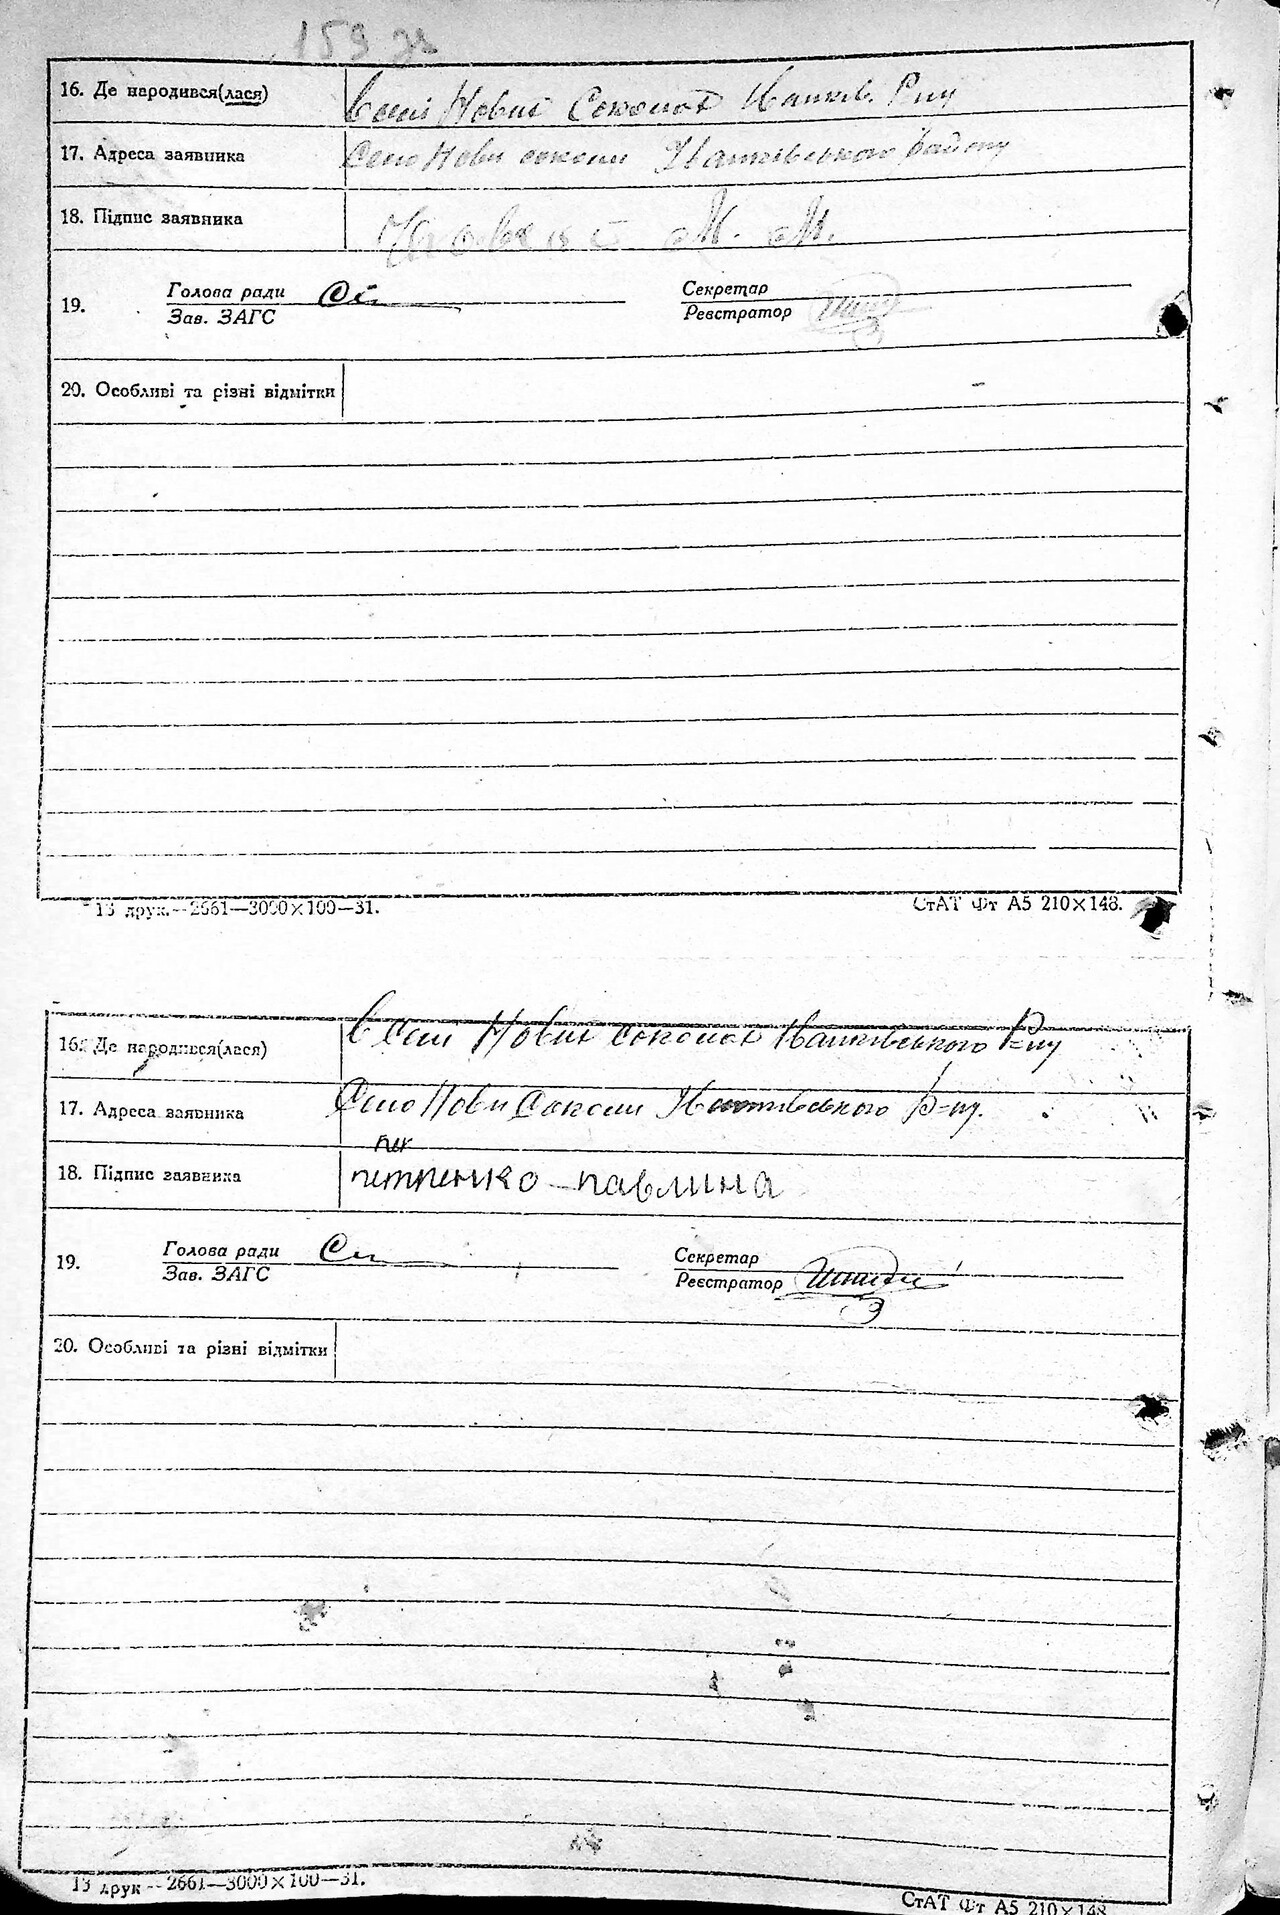 159 зв
16. Де народився(лася) В селі Нових Соколах Іванків. Р-ну
17. Адреса заявника Село Нови соколи Іванківського району
18. Підпис заявника М. М.
19. Голова ради Секретар
Зав. ЗАГС Реєстратор
20. Особливі та різні відмітки
13 друк.—2661—3000×100—31. СтАТ Фт А5 210×148.
16. Де народився(лася) В селі Нових соколах Іванківського Р=ну
17. Адреса заявника Село Нови Соколи Іванківського Р=ну.
пет
18. Підпис заявника петренко—павлина
19. Голова ради Секретар
Зав. ЗАГС Реєстратор
20. Особливі та різні відмітки
13 друк—2661—3000×100—31.
СтАТ Фт А5 210×148